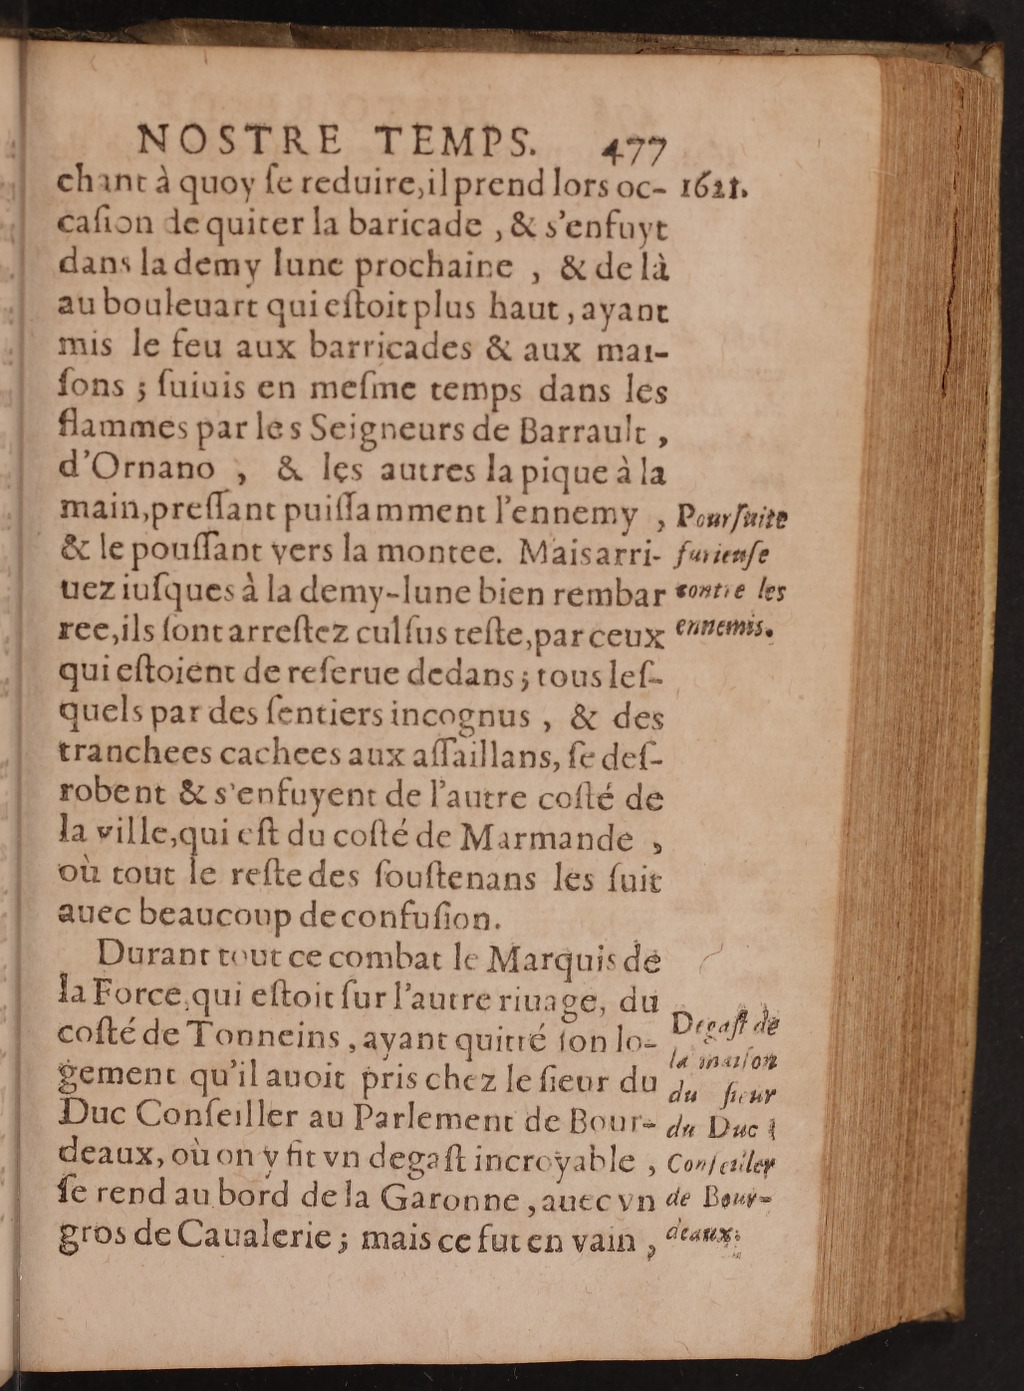 NOSTRE TEMPS. 477
chant à quoy ſe reduire, il prend lors oc- 1621.
caſion de quiter la baricade , & s'enfuyt
dans la demy lune prochaine , & de là
au bouleuart qui eſtoit plus haut , ayant
mis le feu aux barricades & aux mai-
ſons ; ſuiuis en meſme temps dans les
flammes par les Seigneurs de Barrault ,
d'Ornano , & les autres la pique à la
main, preſſant puiſſamment l'ennemy ,
& le pouſſant vers la montee. Mais arri-
uez iuſques à la demy-lune bien rembar
ree, ils ſont arreſtez culſus teſte, par ceux
qui eſtoient de reſerue dedans ; tous leſ-
quels par des ſentiers incognus , & des
tranchees cachees aux aſſaillans, ſe deſ-
robent & s'enfuyent de l'autre coſté de
la ville, qui eſt du coſté de Marmande ,
où tout le reſte des ſouſtenans les ſuit
auec beaucoup de confuſion.
Pourſuite
furieuſe
contre les
ennemis.
Durant tout ce combat le Marquis de
la Force, qui eſtoit ſur l'autre riuage, du
coſté de Tonneins , ayant quitté ſon lo-
gement qu'il auoit pris chez le ſieur du
Duc Conſeiller au Parlement de Bour-
deaux, où on y fit vn degaſt incroyable ,
ſe rend au bord de la Garonne , auec vn
gros de Caualerie ; mais ce fut en vain ,
Degaſt de
la maiſon
du ſieur
du Duc
Conſeiller
de Bour-
deaux.